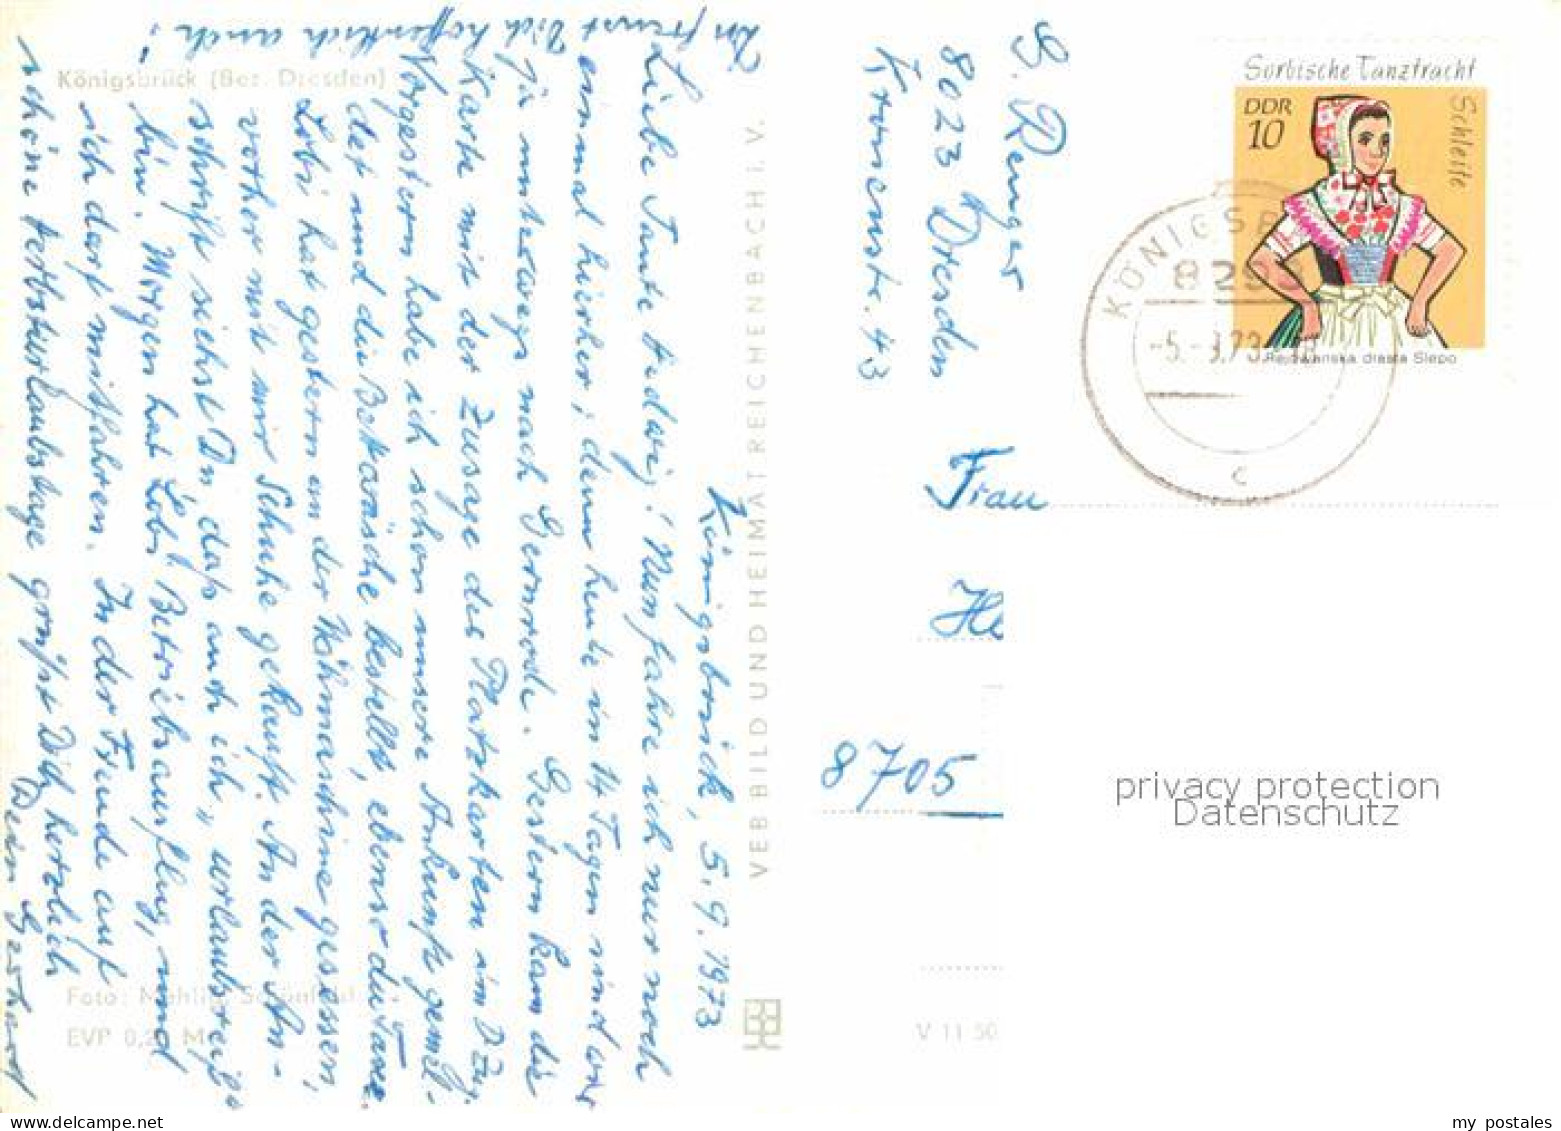 Königsbrück (Bez. Dresden)
Königsbrück, 5.9.1973
Liebe Tante Hedwig! Nun fahre ich nur noch
einmal hierher; denn heute in 14 Tagen sind wir
ja unterwegs nach Gernrode. Gestern kam die
Karte mit der Zusage der Platzkarten im D Zug.
Vorgestern habe ich schon unsere Ankunft gemel-
det und die bestellt, ebenso die Taxe.
Lobi hat gestern an der Nähmaschine gesessen,
vorher mit mir Schuhe gekauft. An der An-
schrift siehst Du, daß auch ich „urlaubsreif"
bin. Morgen hat Lobi Betriebsausflug, und
ich darf mitfahren. In der Freude auf
schöne Herbsturlaubstage grüßt Dich herzlich
Dein Gerhard
Du freust Dich hoffentlich auch!
Foto: Mehlig, Schönfeld
EVP 0,20 M
VEB BILD UND HEIMAT REICHENBACH I. V.
G. Renger
8023 Dresden
Kronenstr. 43
Sorbische Tanztracht
Schleife
DDR
10
Rejowanska drasta Slepo
KÖNIGSB
829
-5.-9.73
c
Frau
He
8705
V 11 50
privacy protection
Datenschutz
my postales